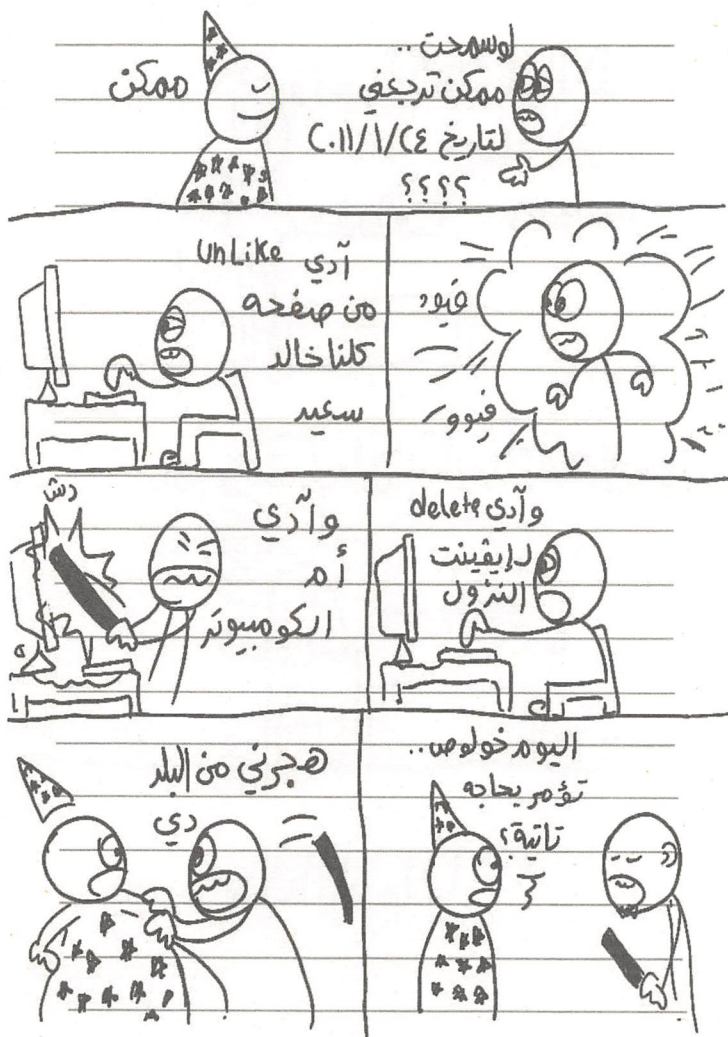 لو سمحت..
ممكن ترجعني
لتاريخ ٢٤/١/٢٠١١
؟؟؟؟
ممكن
فيوو
فيوو
آدي unLike
من صفحه
كلنا خالد
سعيد
وآدي delete
لإيڤينت
النزول
وآدي
أم
الكومبيوتر
دش
اليوم خولوص..
تؤمر بحاجه
تانية؟
هجرني من البلد
دي